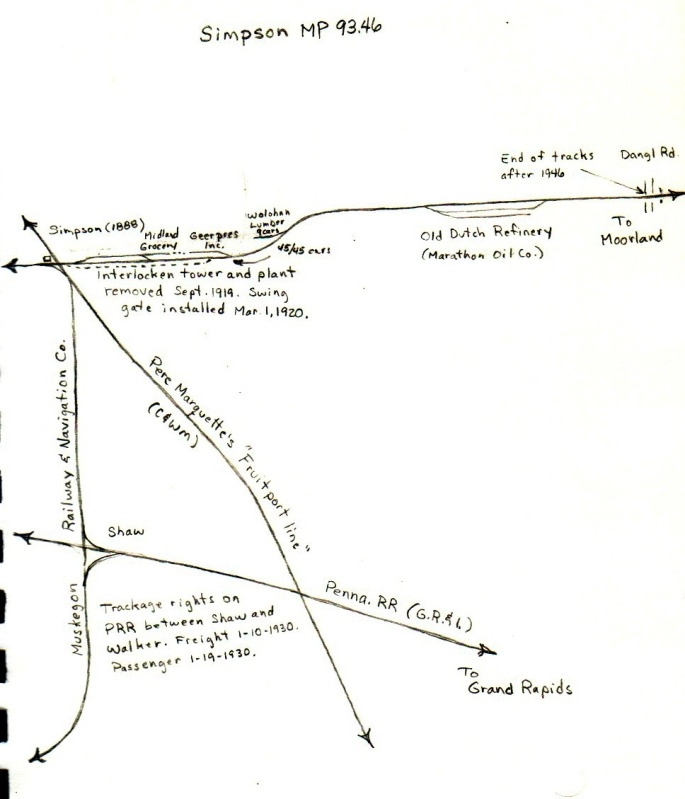 Simpson MP 93.46
End of tracks
after 1946
Dangl Rd.
To
Moorland
Old Dutch Refinery
(Marathon Oil Co.)
Wolohan
Lumber
9cars
45/45 cars
Simpson (1888)
Midland
Grocery
Geerpres
Inc.
Interlocken tower and plant
removed Sept. 1919. Swing
gate installed Mar. 1, 1920.
Pere Marquette's "Fruitport line"
(C&WM)
Muskegon Railway & Navigation Co.
Shaw
Trackage rights on
PRR between Shaw and
Walker. Freight 1-10-1930.
Passenger 1-19-1930.
Penna. RR (G.R.& I.)
To
Grand Rapids